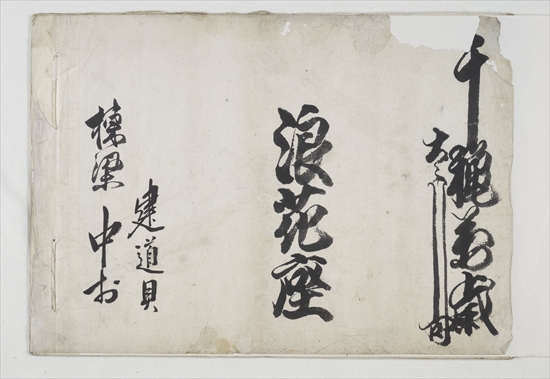 千穐万歳
大々叶
浪花座
建道具
棟梁中於